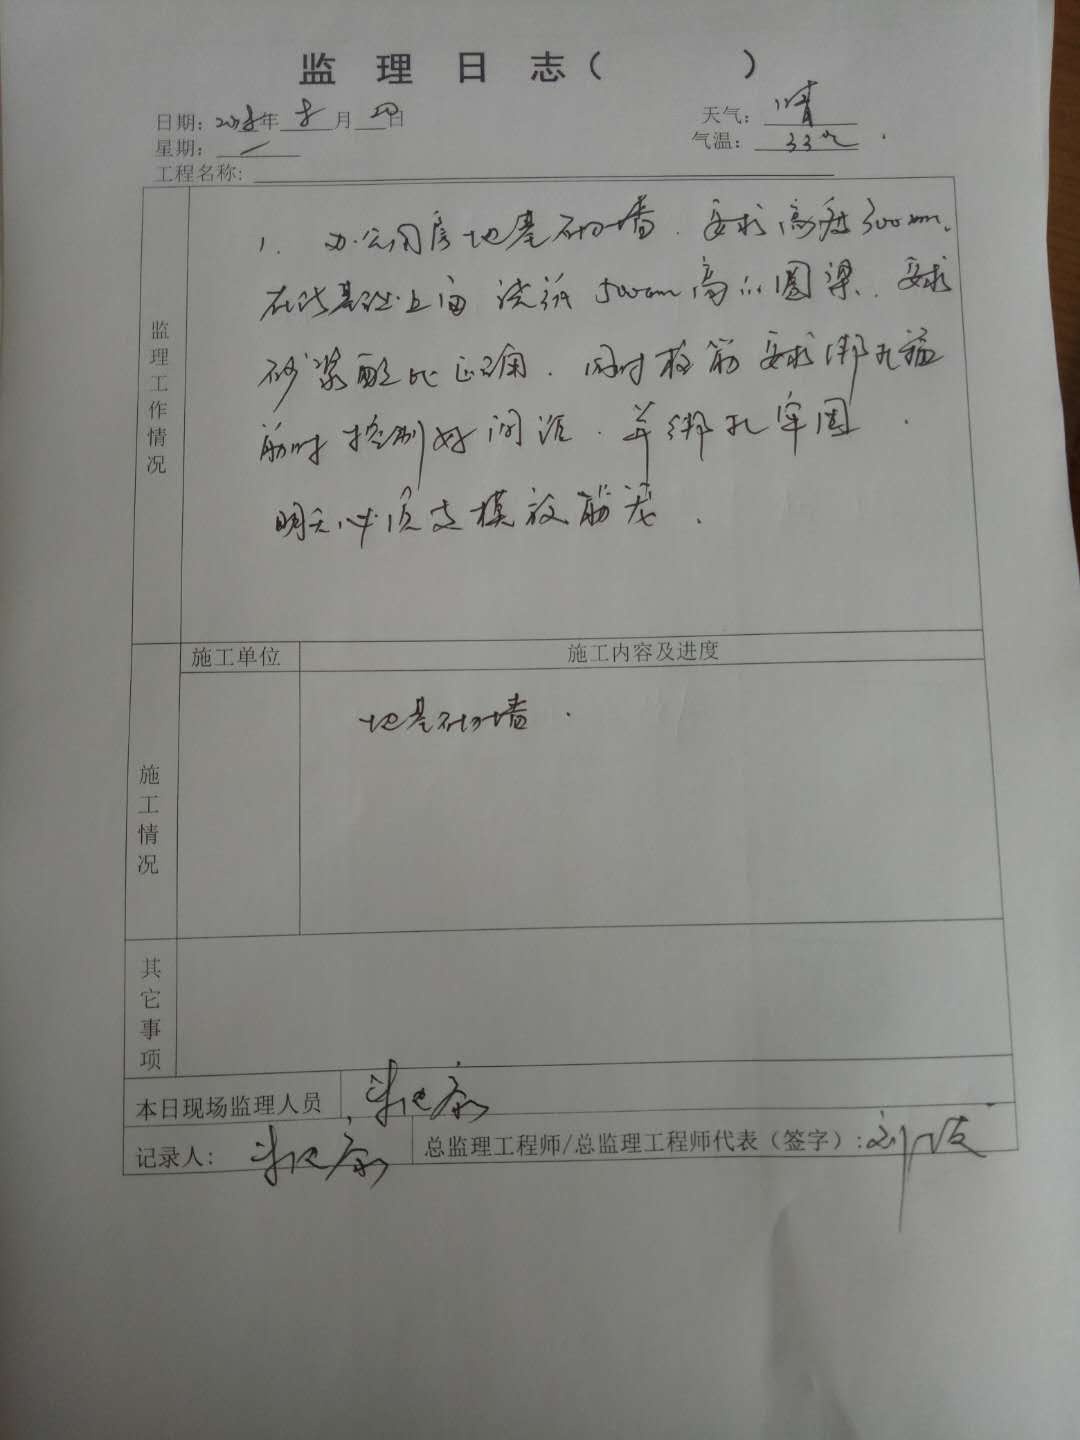 监理日志（ ）
日期： 2018年 8 月 20日
天气： 晴
星期： 一
气温： 33℃
工程名称：
监理工作情况
1. 办公用房地基砌墙. 要求高度300mm.
在此基础上面浇筑500mm高的圈梁. 要求
砂浆配比正确. 同时植筋要求绑扎箍
筋时控制好间距. 并绑扎牢固.
明天必须支模放筋笼.
施工单位
施工内容及进度
施工情况
地基砌墙.
其它事项
本日现场监理人员
记录人：
总监理工程师/总监理工程师代表（签字）: 刘